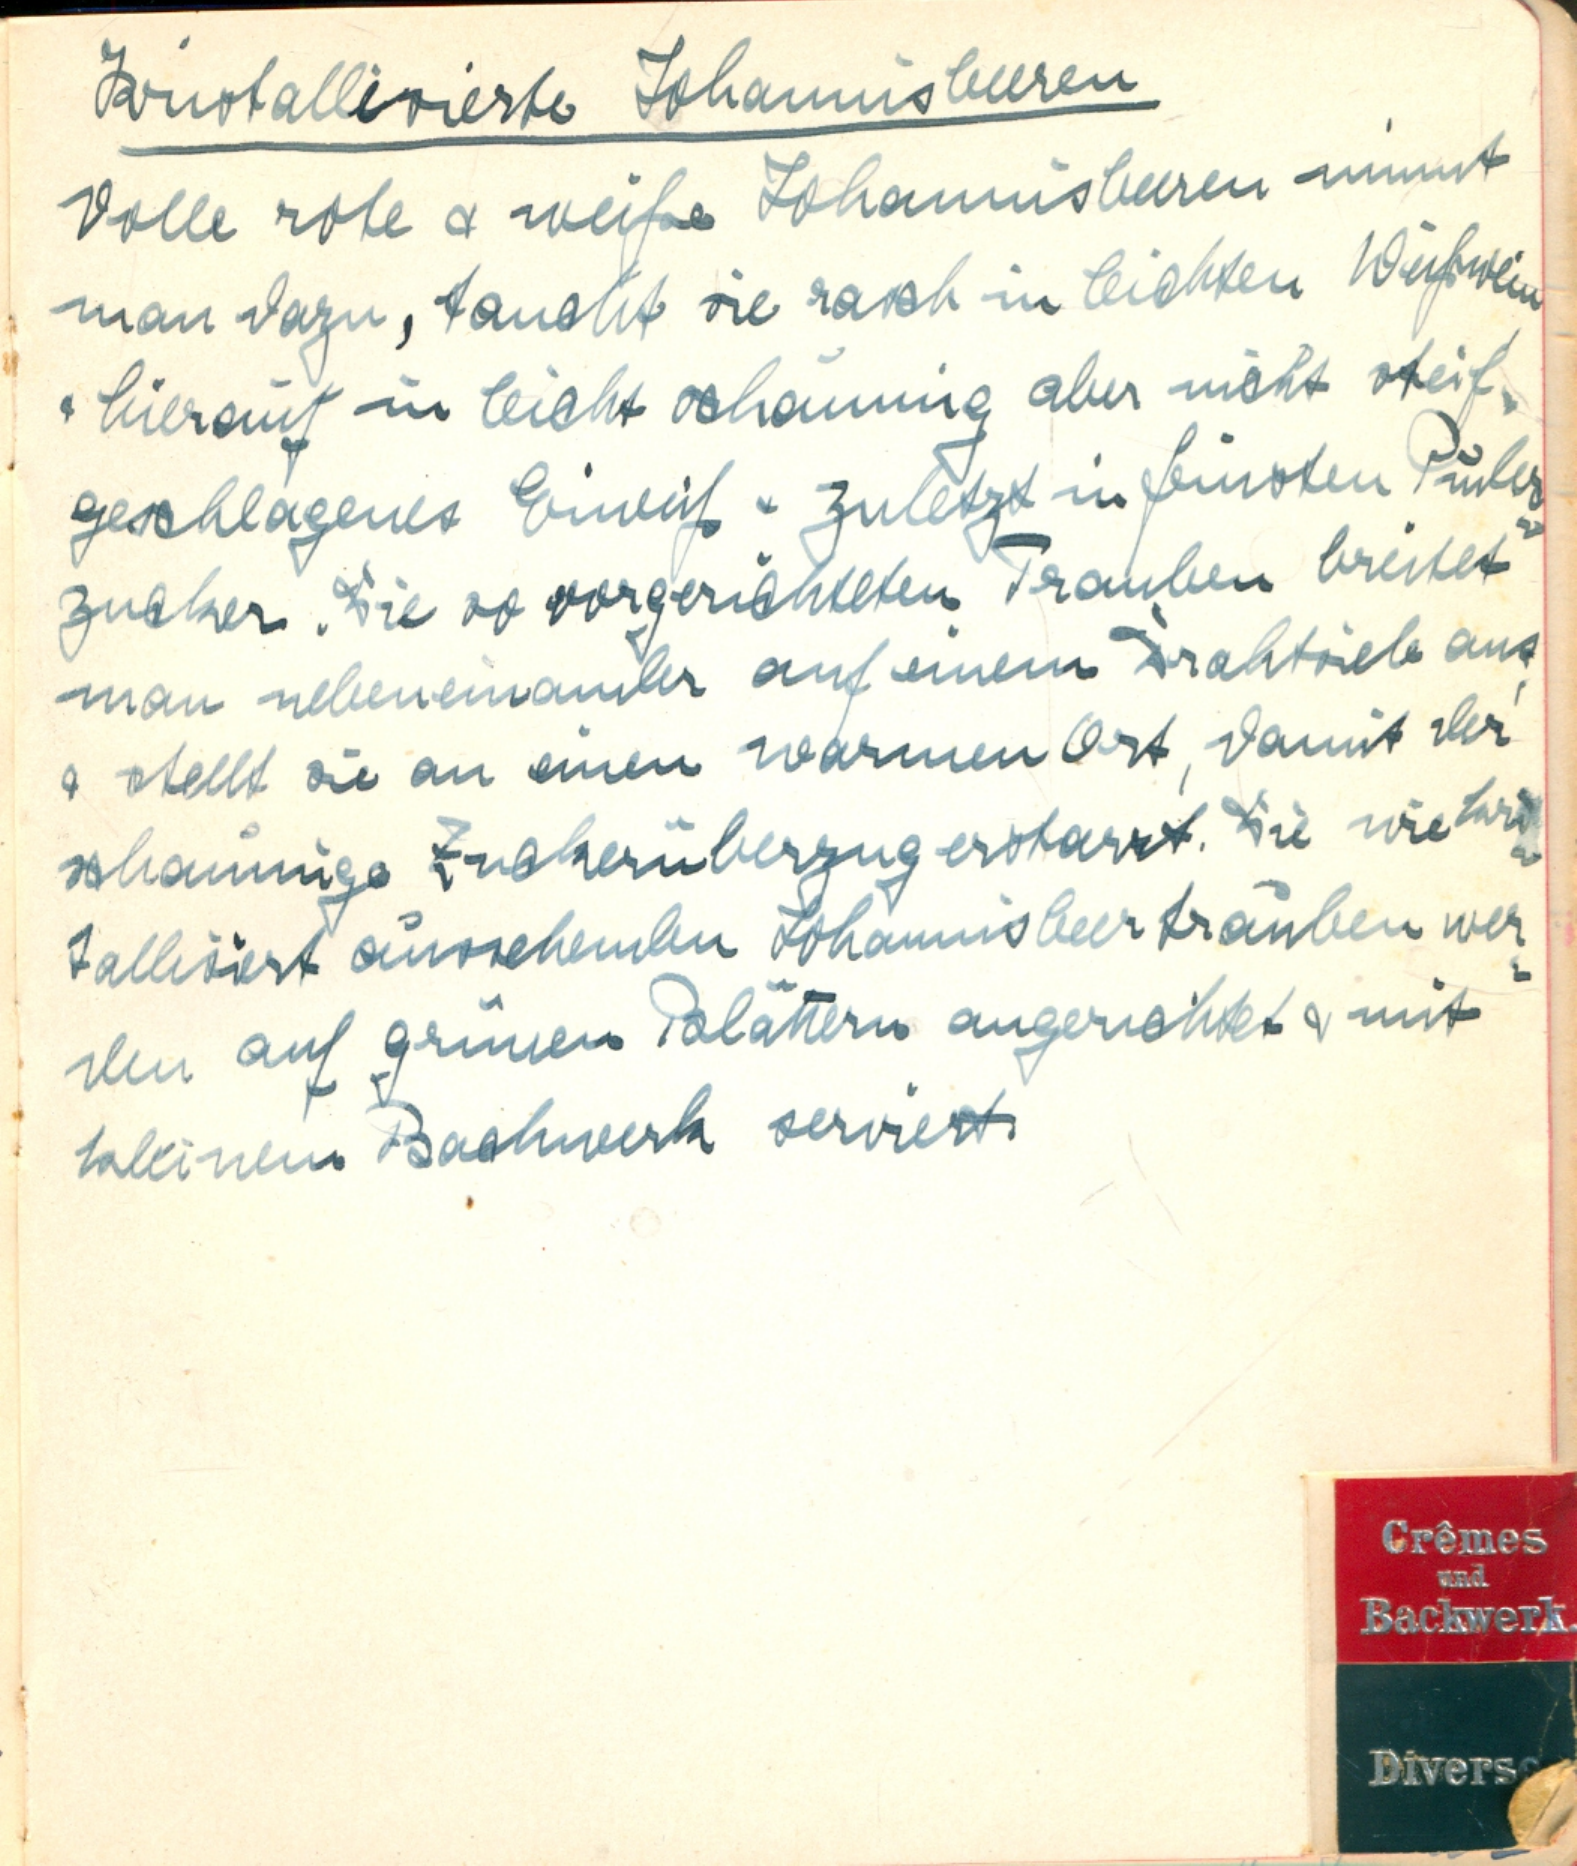 Kristallisierte Johannisbeeren
Volle rote & weiße Johannisbeeren nimmt
man dazu, taucht sie rasch in leichten Weißwein
& hierauf in leicht schaumig aber nicht steif
geschlagenes Eiweiß & zuletzt in feinsten Puder=
zucker. Die so vorgerichteten Trauben breitet
man nebeneinander auf einem Drahtsieb aus,
& stellt sie an einen warmen Ort, damit der
schaumige Zuckerüberzug erstarrt. Die wie kris=
tallisiert aussehenden Johannisbeertrauben wer=
den auf grünen Blättern angerichtet & mit
kleinem Backwerk serviert.
Crêmes
und
Backwerk.
Diverse